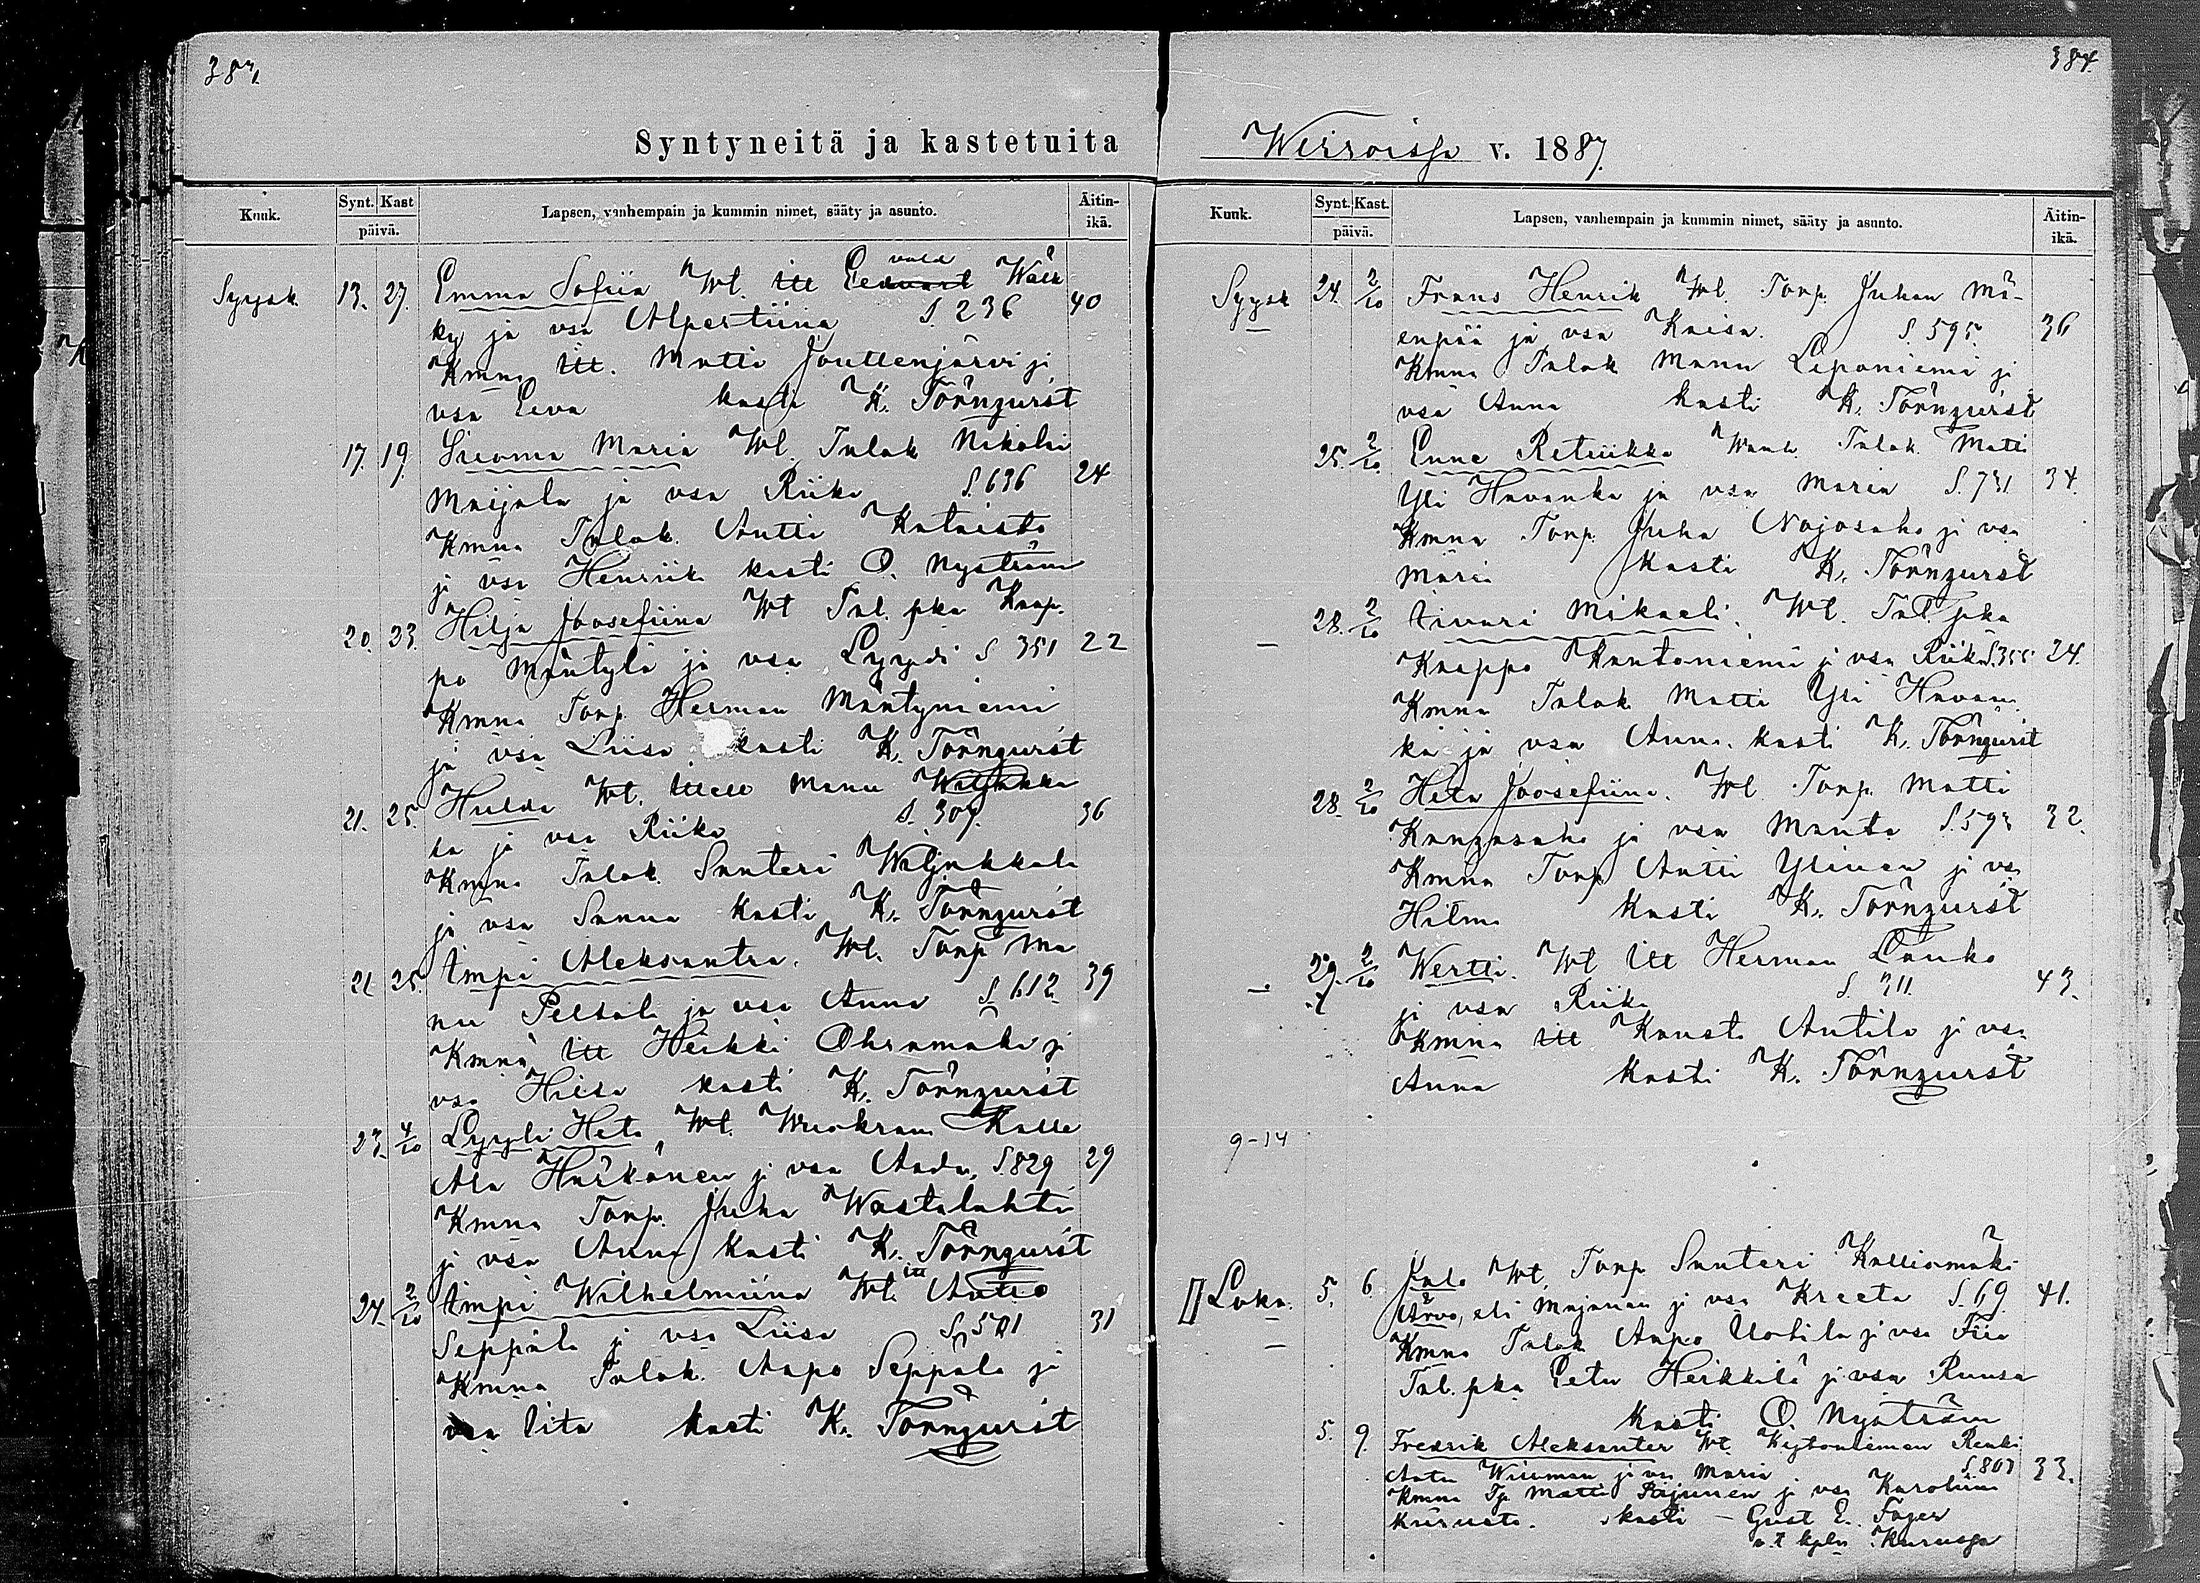 383.
Syntyneitä ja kastetuita
Kuuk. Synt. Kast päivä. Lapsen, vanhempain ja kummin nimet, sääty ja asunto. Äitin-ikä.
Syysk. 13. 27. Emma Sofiia Wt. Itt Eedvard vald Wäh
ky ja vsa Alpertiina S. 236 40
Kmna Itt. Matti Jouttenjärvi ja
vsa Eeva kasti K. Törnqvist
17. 19. Suoma Maria Wt. Talok Nikolai
Maijala ja vsa Riika S. 636 24
Kmna Talok. Antti Kataisto
ja vsa Henriika kasti O. Nyström
20. 23. Hilja Joosefiina Wt Tal. pka Kaap.
po Mäntylä ja vsa Lyydi S 351 22
Kmna Torp. Herman Mäntyniemi
ja vsa Liisa kasti K. Törnqvist
21. 25. Hulda Wt. Manu Wiljakka
la ja vsa Riika S. 307. 36
Kmna Talok. Santeri Wiljakkala
ja vsa Sanna kasti K. Törnqvist
21 25. Ampi Aleksantra. Wt. Torp Ma
nu Peltola ja vsa Anna S 612. 39
Kmna Itt Heikki Ohramäki ja
vsa kasti K. Törnqvist
23. 4/10 Lyyli Heta Wt. Wuokram Kalle
Ala Härkönen ja vsa Aada, S. 829 29
Kmna Torp. Juha Wastalahti
ja vsa Anna kasti K. Törnqvist
24. 2/10 Ampi Wilhelmiina Wt. Itt Antto
Seppälä ja vsa Liisa S. 501 31
Kmna Talok. Aapo Seppälä ja
vsa Iita kasti K. Törnqvist
384.
Wirroissa v. 1887.
Kuuk. Synt. Kast. päivä. Lapsen, vanhempain ja kummin nimet, sääty ja asunto. Äitin-ikä.
Syysk 24. 2/10 Frans Henrik Wt. Torp. Juhan Mä-
enpää ja vsa Kaisa. S. 595. 36
Kmna Talok Manu Leponiemi ja
vsa Anna kasti K. Törnqvist
25. 2/10. Enne Retriikka Talok. Matti
Yli Havanka ja vsa Maria S. 731 34.
Kmna Torp. Juha Nojosaho ja vsa
Maria kasti K. Törnqvist
28. 2/10 Aivari Mikaeli. Wt. Tal. pka
Kaappo Kantoniemi ja vsa Riika S. 355 24.
Kmna Talok Matti Yli Havan
ka ja vsa Anna. kasti K. Törnqvist
28. 2/10 Heta Joosefiina. Wt Torp. Matti
Kangasaho ja vsa Manta S. 593 32.
Kmna Torp Antti Ylinen ja vsa
Hilma kasti K. Törnqvist
29. 2/10 Wertti. Wt Itt Herman Lauko
ja vsa Riika S. 311. 43.
Kmna Itt Kaust. Antila ja vsa
Anna kasti K. Törnqvist
9-14
Loka. 5. 6. Kalo Wt. Torp Santeri Kalliomäki
Arvo, eli Majanen ja vsa Kreeta S. 69. 41.
Kmna Talok Aapo Uotila ja vsa Fiia
Tal. pka Eetu Heikkilä ja vsa Ruusa
kasti O. Nyström
5. 9. Fredrik Aleksanter Wt. Renki
Antu ja vsa Maria S. 807 33.
Kmna Tp. Matti Pajunen ja vsa Karoliina
Kurusta. kasti - Gust E. Fager
v. t. kpln Kurussa